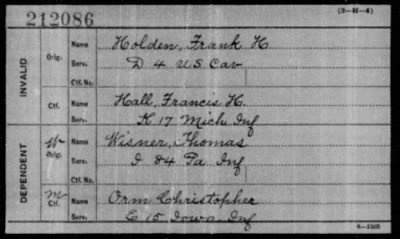 212086
(3-H-4)
INVALID
Orig.
Name Holden, Frank H
Serv. D 4 U.S. Cav
Ctf. No.
Ctf.
Name Hall, Francis H.
Serv. K 17 Mich Inf
DEPENDENT
W
Orig.
Name Wisner, Thomas
Serv. I 84 Pa Inf
Ctf. No.
M
Ctf.
Name Orm Christopher
Serv. E 15 Iowa Inf